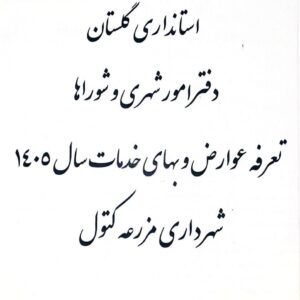 استانداری گلستان
دفتر امور شهری و شوراها
تعرفه عوارض و بهای خدمات سال ۱۴۰۵
شهرداری مزرعه کتول